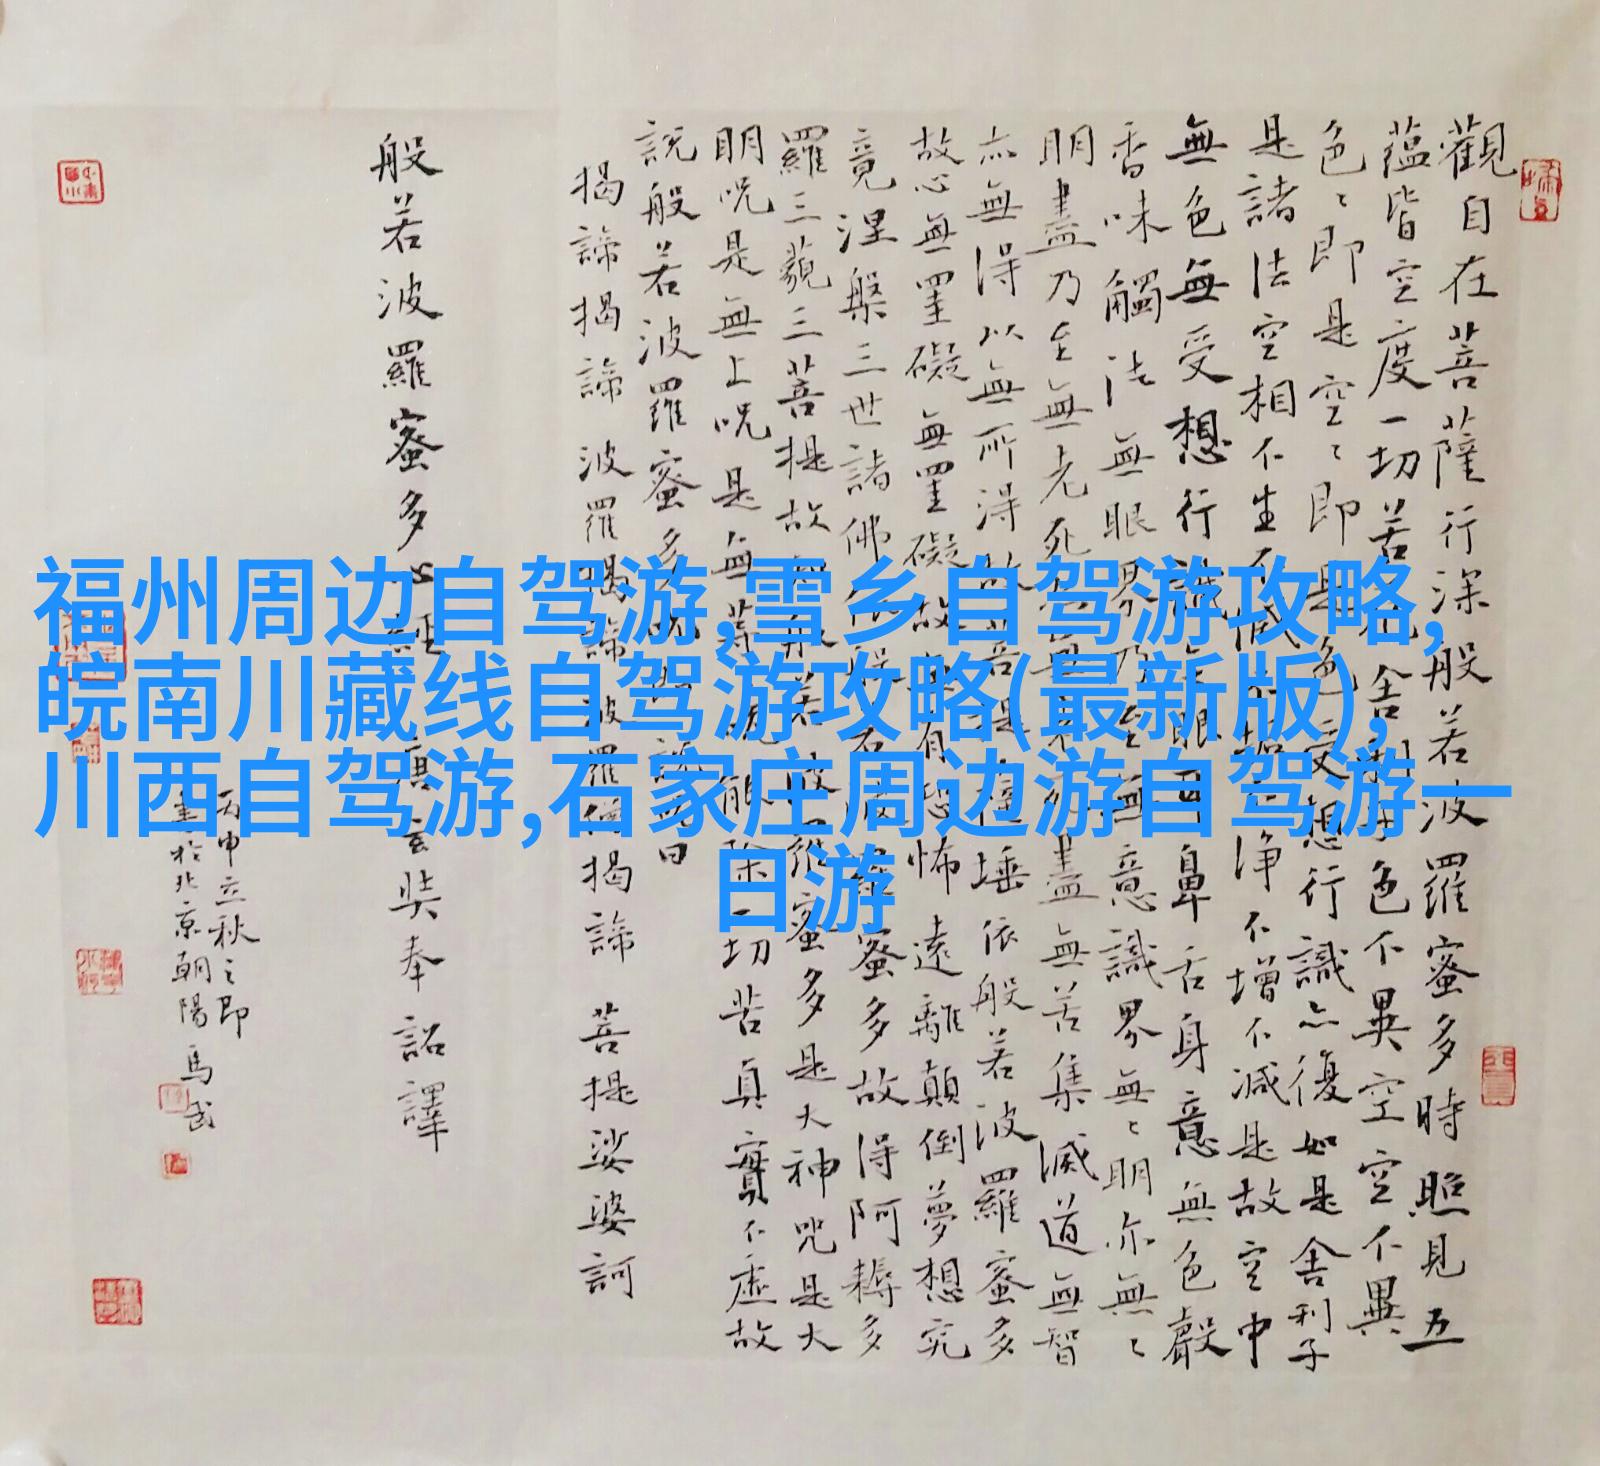 福州周边自驾游,雪乡自驾游攻略,
皖南川藏线自驾游攻略(最新版),
川西自驾游,石家庄周边游自驾游一
日游
觀自在菩薩行深般若波羅蜜多時照見五
蕴皆空度一切苦厄舍利子色不異空空不異
色〻即是空〻即是色受想行識亦復如是舍利子
是諸法空相不生不滅不垢不淨不增不减是故空中
無色無受想行識無眼耳鼻舌身意無色聲
香味觸法無眼界乃至無意識界無〻明亦無〻
明盡乃至無老死亦無老死盡無苦集滅道無智
亦無得以無所得故菩提薩埵依般若波羅蜜多
故心無罣礙無罣礙故無有恐怖遠離顛倒夢想究
竟涅槃三世諸佛依般若波羅蜜多故得阿耨多
羅三藐三菩提故知般若波羅蜜多是大神咒是大
明咒是無上咒是無等等咒能除一切苦真實不虛故
說般若波羅蜜多咒即說咒曰
揭諦揭諦 波羅揭諦 波羅僧揭諦 菩提娑婆訶
般若波羅蜜多心經 唐玄奘奉詔譯
丙申立秋之即
書於北京朝陽 馬武